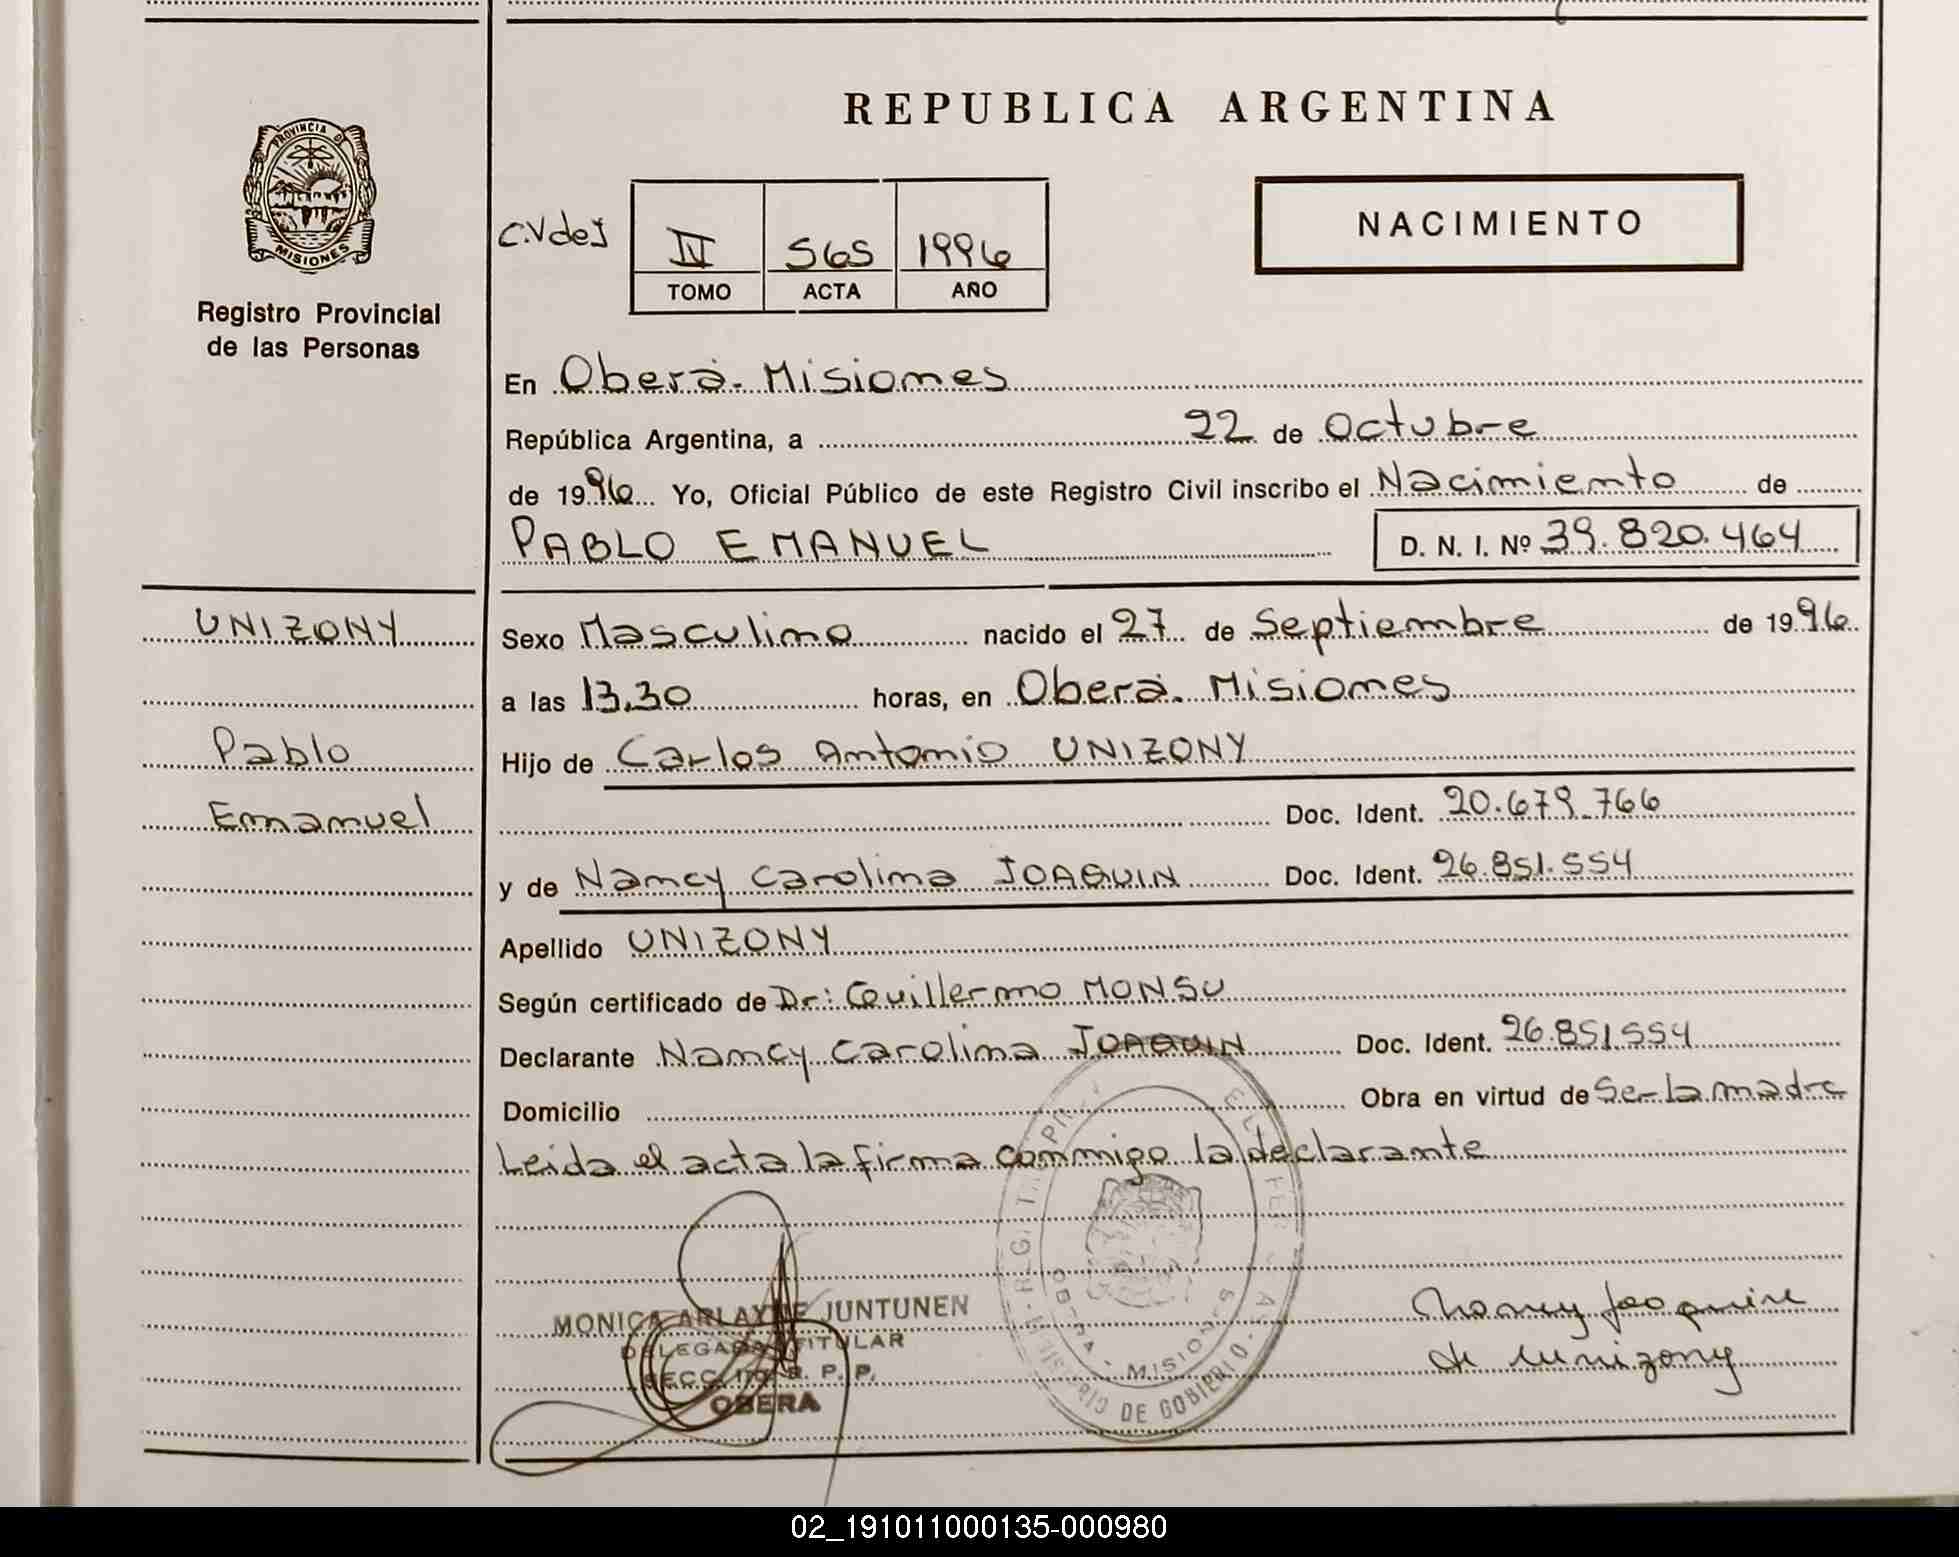 REPUBLICA ARGENTINA
PROVINCIA DE
MISIONES
Registro Provincial
de las Personas
C.V de J
IV 565 1996
TOMO ACTA AÑO
NACIMIENTO
En Oberá. Misiones
República Argentina, a 22 de Octubre
de 1996 Yo, Oficial Público de este Registro Civil inscribo el Nacimiento de
PABLO EMANUEL D. N. I. Nº 39.820.464
UNIZONY
Pablo
Emanuel
Sexo Masculino nacido el 27 de Septiembre de 1996
a las 13,30 horas, en Oberá. Misiones
Hijo de Carlos Antonio UNIZONY
Doc. Ident. 20.679.766
y de Nancy Carolina JOAQUIN Doc. Ident. 26.851.554
Apellido UNIZONY
Según certificado de Dr: Guillermo MONSU
Declarante Nancy Carolina JOAQUIN Doc. Ident. 26.851.554
Domicilio Obra en virtud de Ser la madre
Leida el acta la firma conmigo la declarante
MONICA ARLAYNE JUNTUNEN
DELEGADA TITULAR
SECC. R. P. P.
OBERA
OBERA - MISIONES
MINISTERIO DE GOBIERNO
Nancy Joaquin
de Unizony
02_191011000135-000980